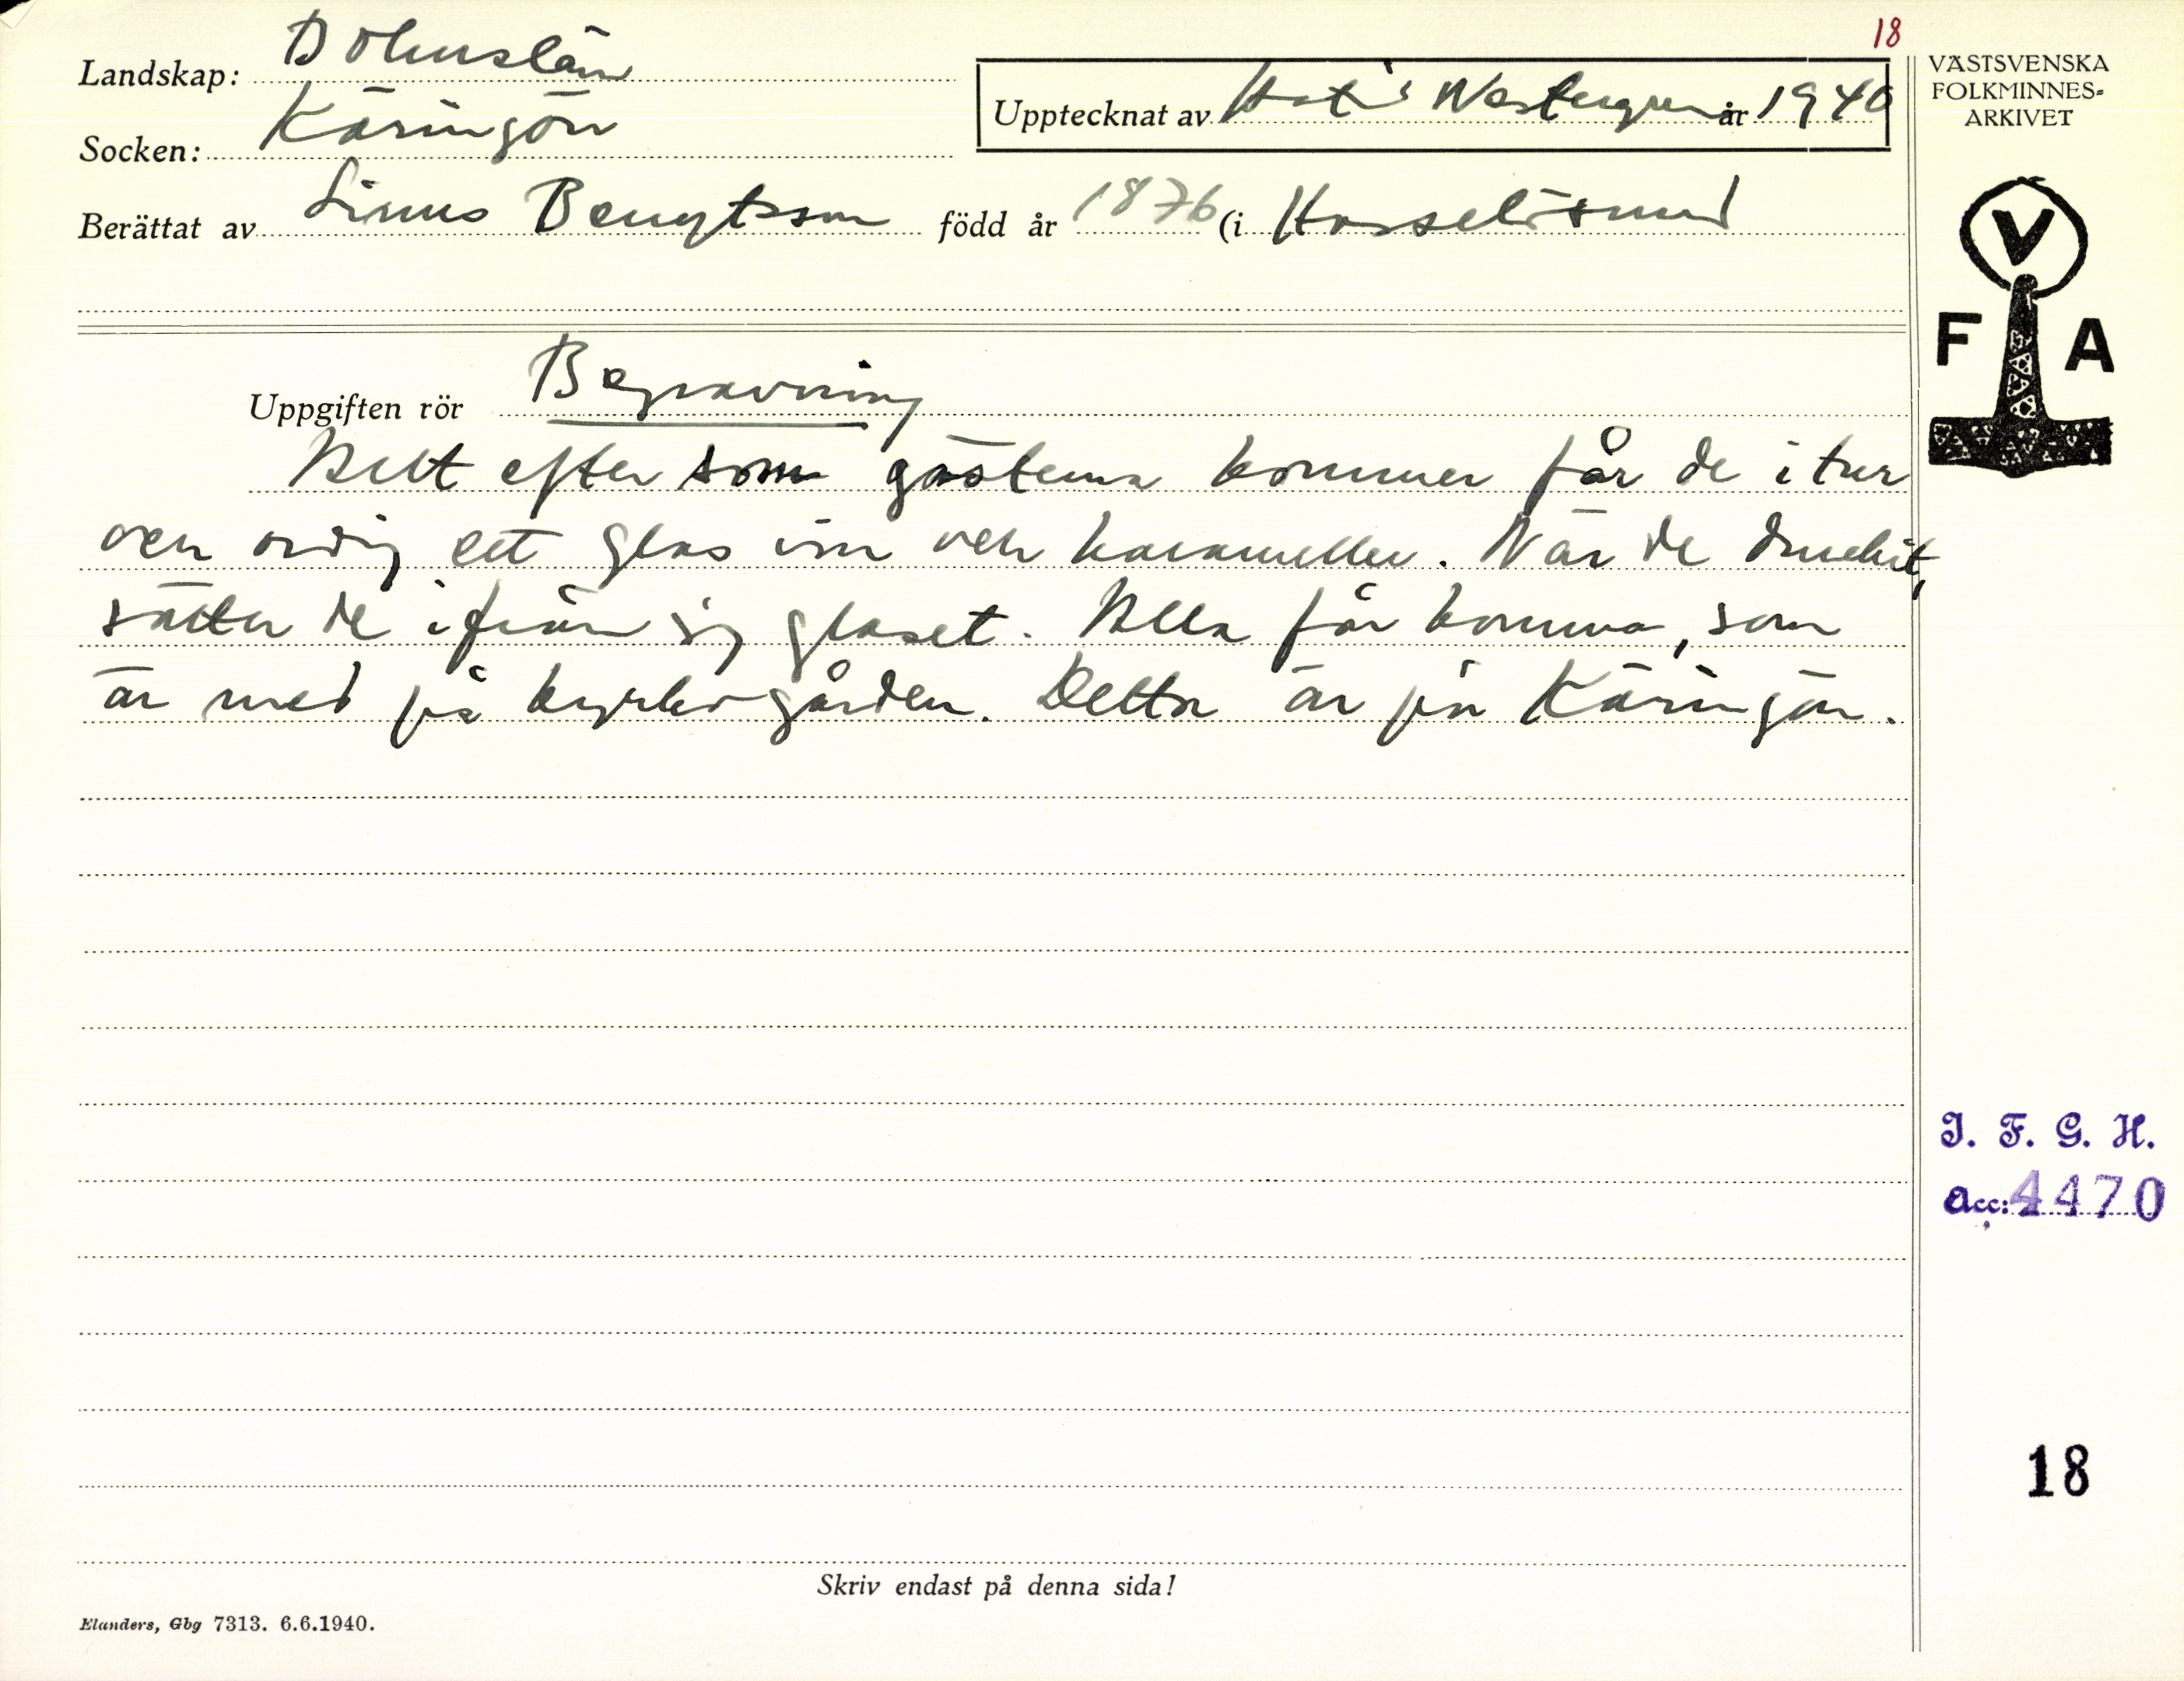 18
Landskap: Bohuslän
Socken: Käringön
Upptecknat av Westergren år 1940
Berättat av Linus Bengtsson född år 1876 (i Hasselösund
VÄSTSVENSKA
FOLKMINNES-
ARKIVET
V
F A
Uppgiften rör Begravning
Allt efter som gästerna kommer får de i tur
och ordng ett glas vin och karameller. När de druckit,
sätter de ifrån sig glaset. Alla får komma, som
är med på kyrkogården. Detta är på Käringön.
I. F. G. H.
Acc: 4470
18
Skriv endast på denna sida!
Elanders, Gbg 7313. 6.6.1940.